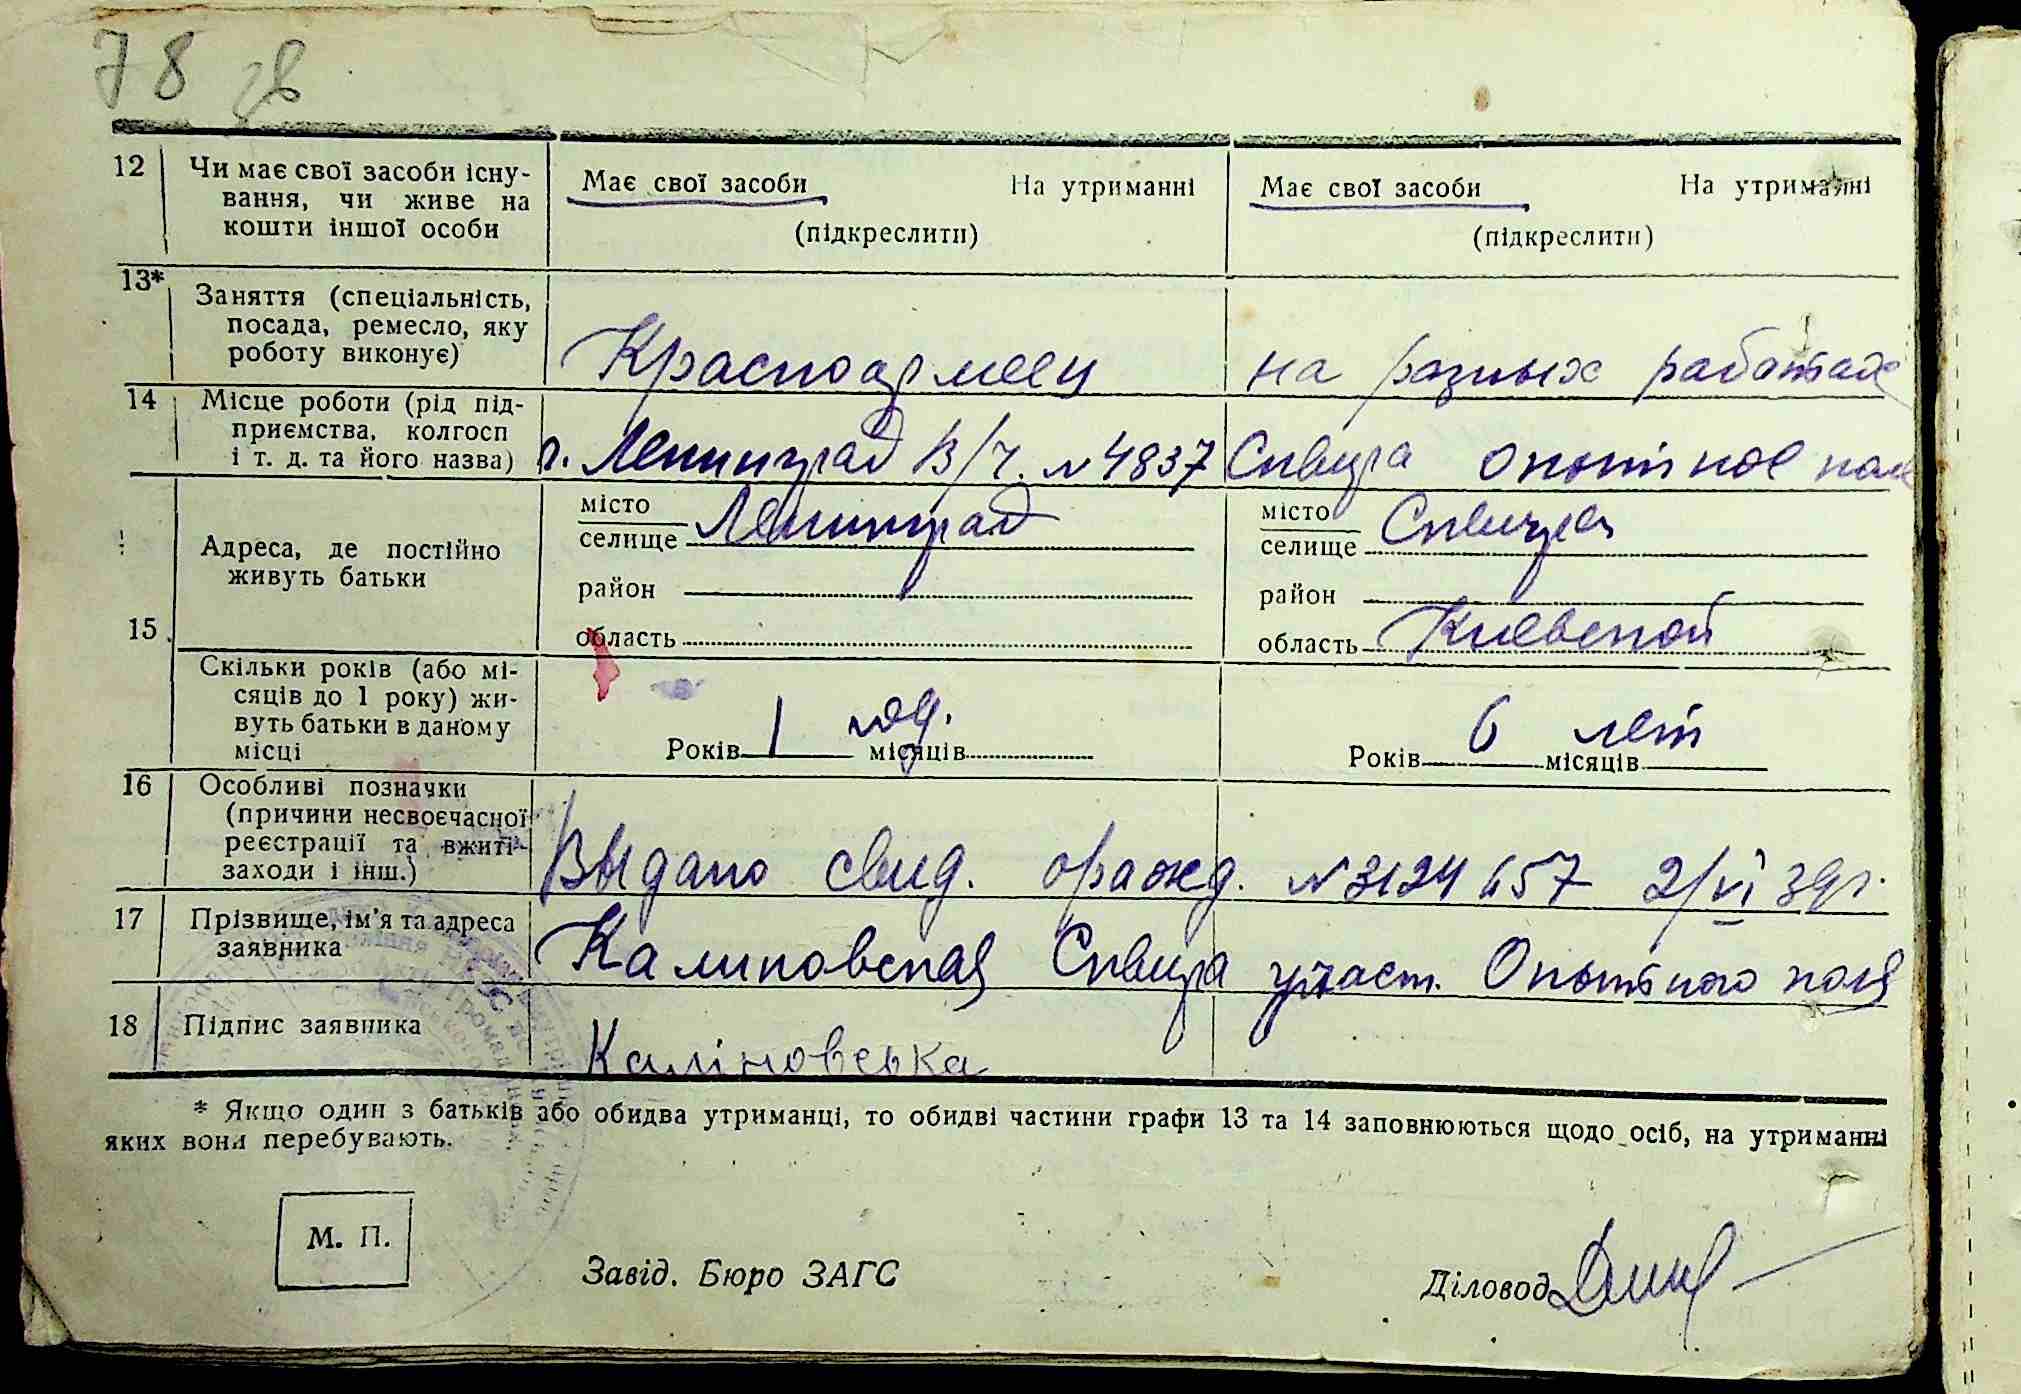 78 зв
12 Чи має свої засоби існу-
вання, чи живе на
кошти іншої особи
Має свої засоби На утриманні
(підкреслити)
Має свої засоби На утриманні
(підкреслити)
13* Заняття (спеціальність,
посада, ремесло, яку
роботу виконує)
Красноармеец
на разных работах
14 Місце роботи (рід під-
приємства, колгосп
і т. д. та його назва)
г. Ленинград В/ч. №4837
Сквира опытное поле
15
Адреса, де постійно
живуть батьки
місто
селище Ленинград
район
область
місто
селище Сквира
район
область Киевской
Скільки років (або мі-
сяців до 1 року) жи-
вуть батьки в даному
місці
Років 1 год. місяців
Років 6 лет місяців
16 Особливі позначки
(причини несвоєчасної
реєстрації та вжиті
заходи і інш.)
Выдано свид. оражд. №3124657 2/VI 39г.
17 Прізвище, ім’я та адреса
заявника
Калиновская Сквира участ. Опытного поля
18 Підпис заявника
Каліновська
* Якщо один з батьків або обидва утриманці, то обидві частини графи 13 та 14 заповнюються щодо осіб, на утриманні
яких вони перебувають.
М. П.
Завід. Бюро ЗАГС
Діловод